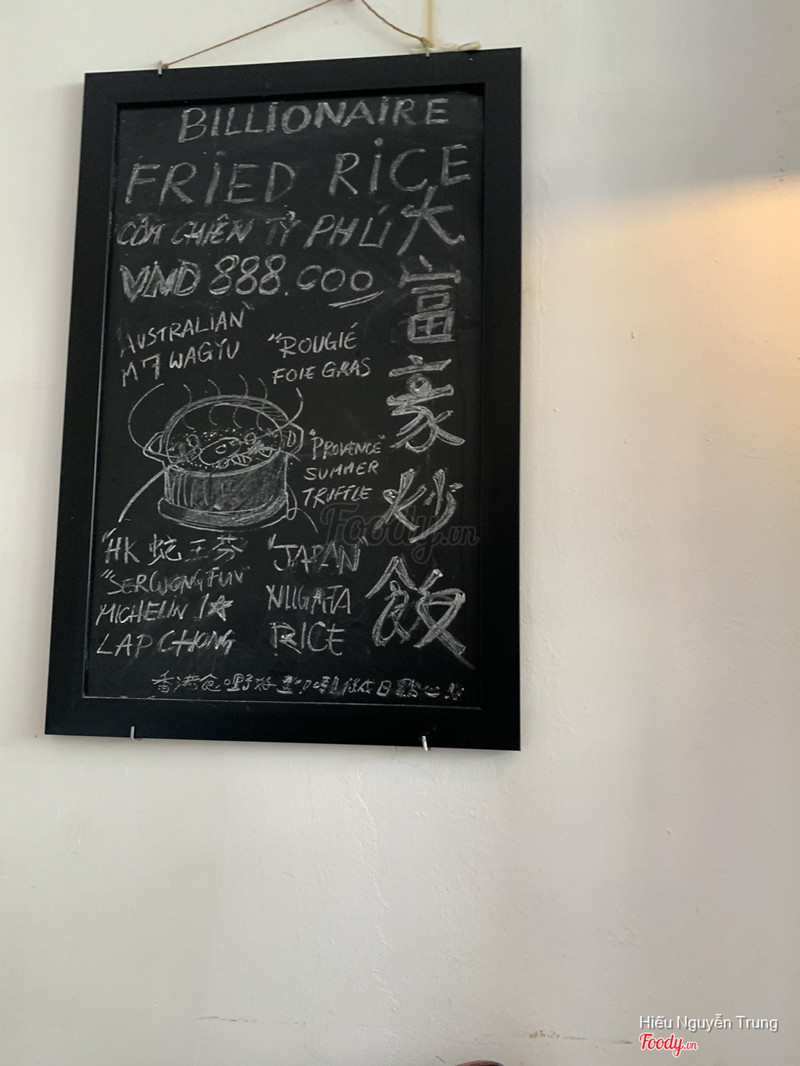 BILLIONAIRE
FRIED RICE
CƠM CHIÊN TỶ PHÚ
VND 888.000
大富豪炒飯
"AUSTRALIAN"
M7 WAGYU
"ROUGIÉ
FOIE GRAS
"PROVENCE"
SUMMER
TRUFFLE
"HK 蛇王芬
"SERWONGFUN"
MICHELIN 1★
LAP CHONG
"JAPAN
NIIGATA
RICE
香港
Foody.vn
Hiếu Nguyễn Trung
Foody.vn